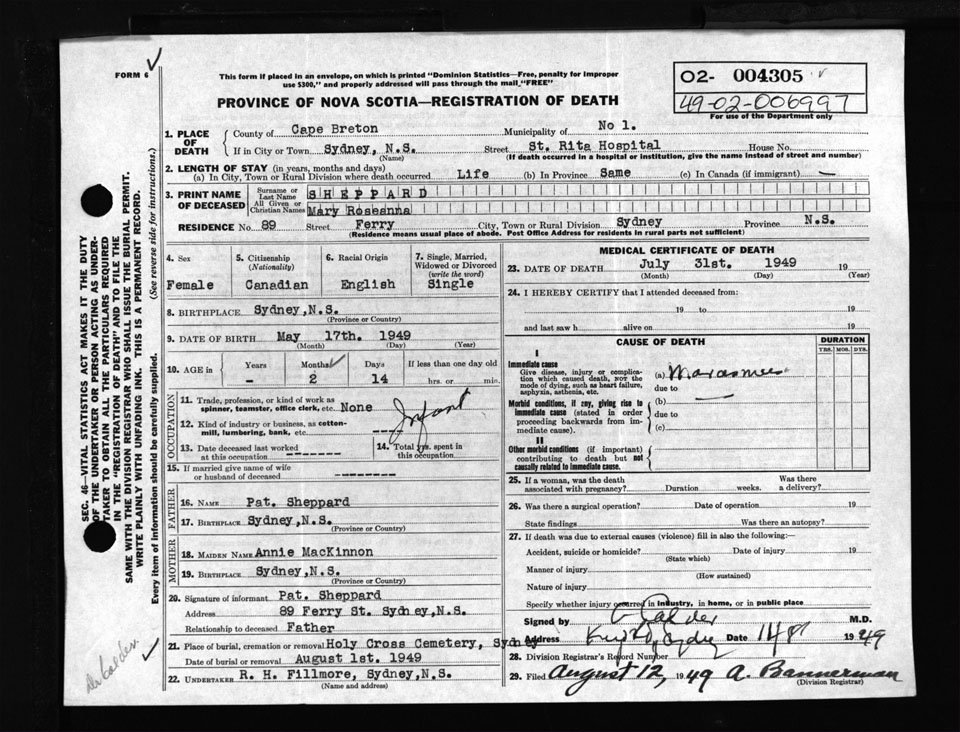 FORM 6
This form if placed in an envelope, on which is printed "Dominion Statistics—Free, penalty for improper
use $300," and properly addressed will pass through the mail "FREE"
PROVINCE OF NOVA SCOTIA—REGISTRATION OF DEATH
02- 004305
49-02-006997
For use of the Department only
1. PLACE OF DEATH
County of Cape Breton Municipality of No 1.
If in City or Town Sydney, N.S. Street St. Rita Hospital House No.
(Name) (If death occurred in a hospital or institution, give the name instead of street and number)
2. LENGTH OF STAY (in years, months and days)
(a) In City, Town or Rural Division where death occurred Life (b) In Province Same (c) In Canada (if immigrant) —
3. PRINT NAME OF DECEASED
Surname or Last Name SHEPPARD
All Given or Christian Names Mary Roseanna
RESIDENCE No. 89 Street Ferry City, Town or Rural Division Sydney Province N.S.
(Residence means usual place of abode. Post Office Address for residents in rural parts not sufficient)
4. Sex
Female
5. Citizenship (Nationality)
Canadian
6. Racial Origin
English
7. Single, Married, Widowed or Divorced (write the word)
Single
8. BIRTHPLACE Sydney,N.S.
(Province or Country)
9. DATE OF BIRTH May 17th. 1949
(Month) (Day) (Year)
10. AGE in Years Months Days If less than one day old
- 2 14 hrs. or min.
OCCUPATION
11. Trade, profession, or kind of work as
spinner, teamster, office clerk, etc. None
Infant
12. Kind of industry or business, as cotton-
mill, lumbering, bank, etc.
13. Date deceased last worked
at this occupation
14. Total yrs. spent in
this occupation
15. If married give name of wife
or husband of deceased
FATHER
16. NAME Pat. Sheppard
17. BIRTHPLACE Sydney,N.S.
(Province or Country)
MOTHER
18. MAIDEN NAME Annie MacKinnon
19. BIRTHPLACE Sydney,N.S.
(Province or Country)
20. Signature of informant Pat. Sheppard
Address 89 Ferry St. Sydney,N.S.
Relationship to deceased Father
21. Place of burial, cremation or removal Holy Cross Cemetery, Sydney
Date of burial or removal August 1st. 1949
22. UNDERTAKER R. H. Fillmore, Sydney,N.S.
(Name and address)
MEDICAL CERTIFICATE OF DEATH
23. DATE OF DEATH July 31st. 1949 19
(Month) (Day) (Year)
24. I HEREBY CERTIFY that I attended deceased from:
19 to 19
and last saw h alive on 19
CAUSE OF DEATH
DURATION
YRS. MOS. DYS.
I
Immediate cause
Give disease, injury or compli-
cation which caused death, NOT the
mode of dying, such as heart failure,
asphyxia, asthenia, etc.
(a) Marasmus
due to
Morbid conditions, if any, giving rise to
immediate cause (stated in order
proceeding backwards from im-
mediate cause).
(b) —
due to
(c)
II
Other morbid conditions (if important)
contributing to death but not
causally related to immediate cause.
25. If a woman, was the death
associated with pregnancy? Duration weeks. Was there
a delivery?
26. Was there a surgical operation? Date of operation 19
State findings Was there an autopsy?
27. If death was due to external causes (violence) fill in also the following:—
Accident, suicide or homicide? Date of injury 19
(State which)
Manner of injury
(How sustained)
Nature of injury
Specify whether injury occurred in industry, in home, or in public place
Signed by Calder M.D.
Address Sydney Date 1949
28. Division Registrar's Record Number
29. Filed August 12, 1949 A. Bannerman
(Division Registrar)
SEC. 46—VITAL STATISTICS ACT MAKES IT THE DUTY
OF THE UNDERTAKER OR PERSON ACTING AS UNDER-
TAKER TO OBTAIN ALL THE PARTICULARS REQUIRED
IN THE "REGISTRATION OF DEATH" AND TO FILE THE
SAME WITH THE DIVISION REGISTRAR WHO SHALL ISSUE THE BURIAL PERMIT.
WRITE PLAINLY WITH UNFADING INK. THIS IS A PERMANENT RECORD.
Every item of information should be carefully supplied. (See reverse side for instructions.)
Dr Calder